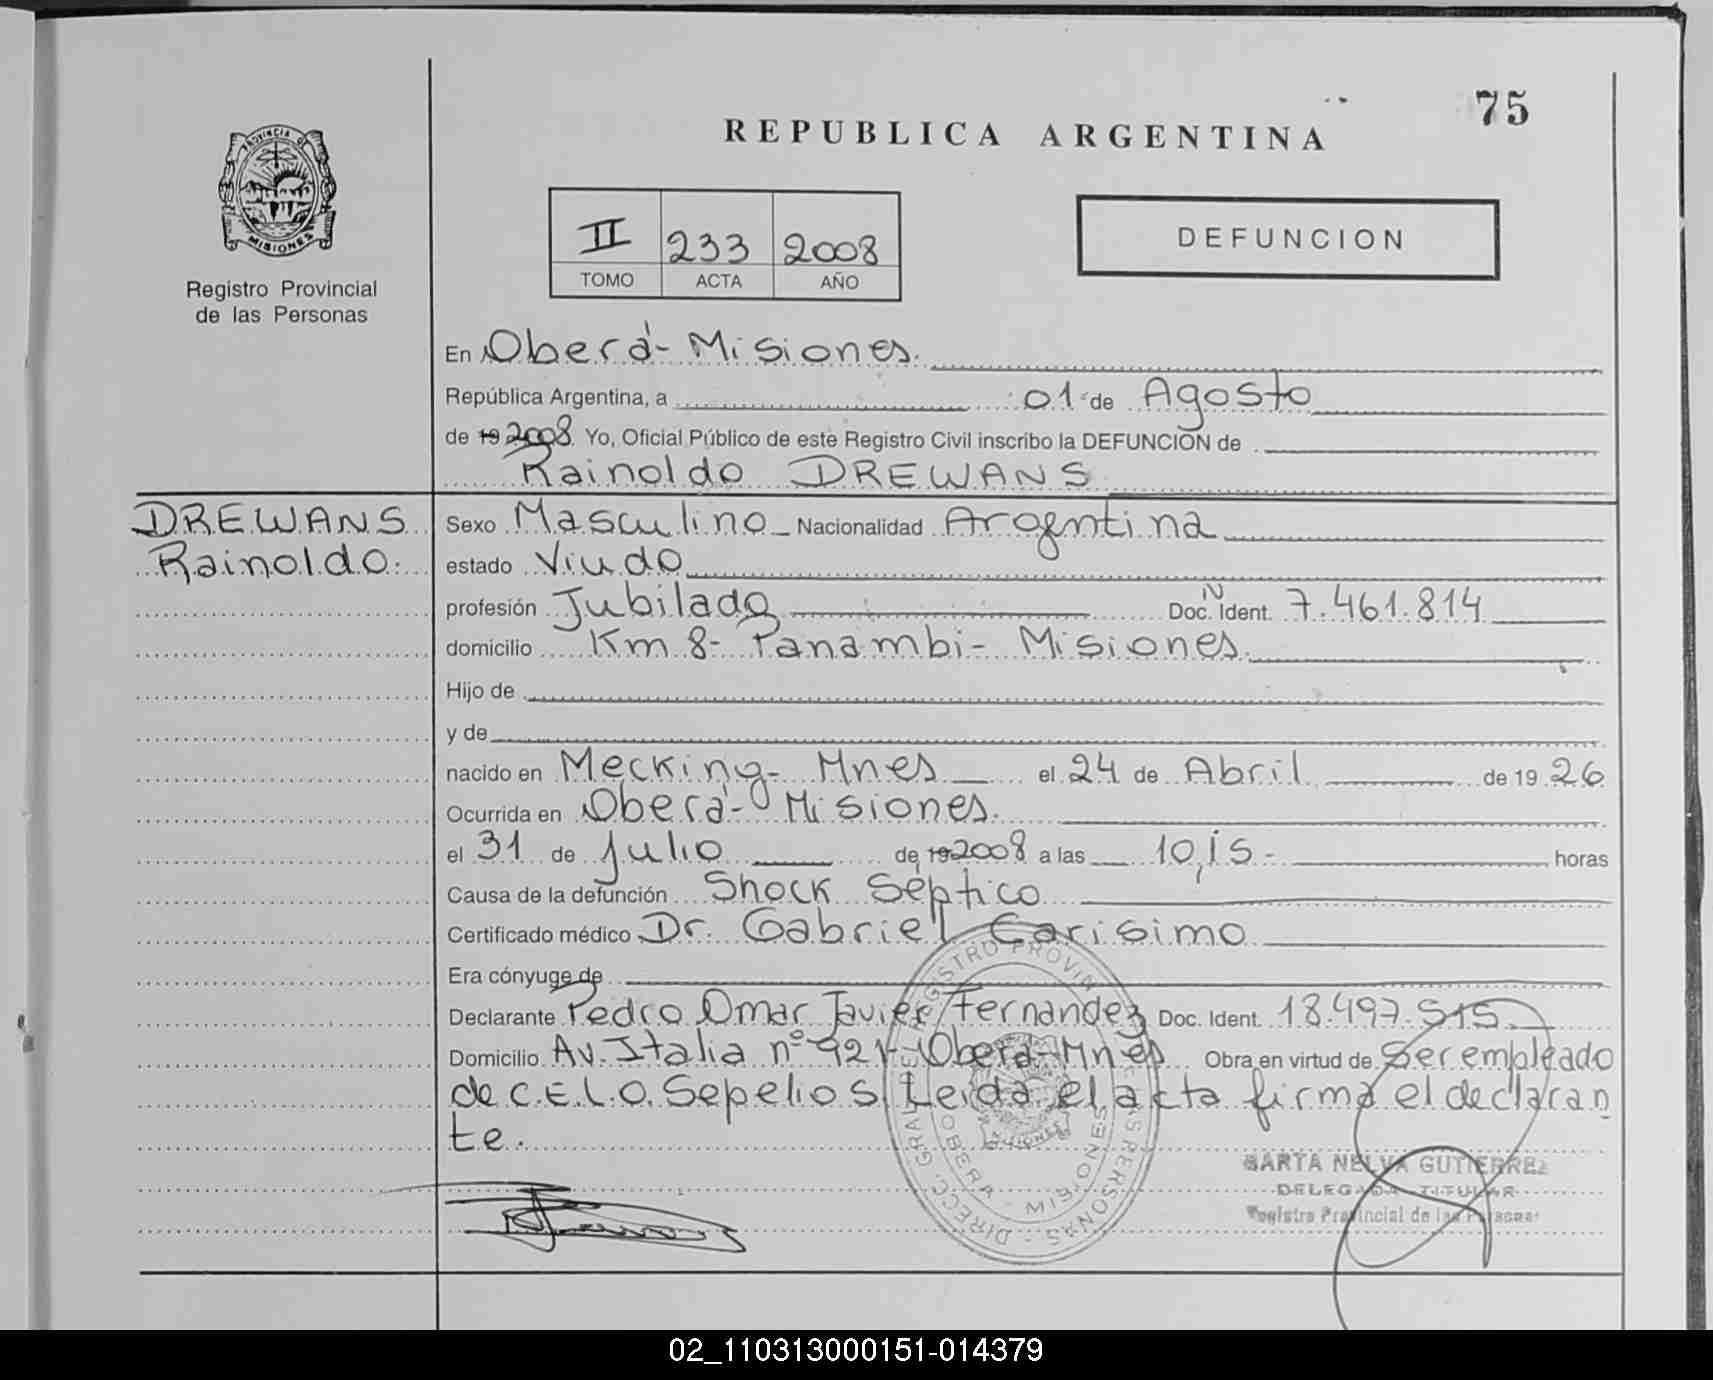 75
REPUBLICA ARGENTINA
PROVINCIA DE
MISIONES
Registro Provincial
de las Personas
II 233 2008
TOMO ACTA AÑO
DEFUNCION
En Oberá - Misiones.
República Argentina, a 01 de Agosto
de 19 2008. Yo, Oficial Público de este Registro Civil inscribo la DEFUNCIÓN de
Rainoldo DREWANS
DREWANS
Rainoldo.
Sexo Masculino Nacionalidad Argentina
estado Viudo
profesión Jubilado Doc. Ident. 7.461.814
domicilio Km 8 - Panambi - Misiones.
Hijo de
y de
nacido en Mecking - Mnes el 24 de Abril de 19 26
Ocurrida en Oberá - Misiones.
el 31 de Julio de 19 2008 a las 10,15 - horas
Causa de la defunción Shock Séptico
Certificado médico Dr. Gabriel Carisimo
Era cónyuge de
Declarante Pedro Omar Javier Fernandez Doc. Ident. 18.497.515
Domicilio Av. Italia nº 921 - Oberá - Mnes Obra en virtud de Ser empleado
de C.E.L.O. Sepelios. Leida el acta firma el declaran
te.
OBERA - MISIONES
MISIONES
NELVA GUTIERREZ
DELEGADA TITULAR
Registro Provincial de las Personas
02_110313000151-014379